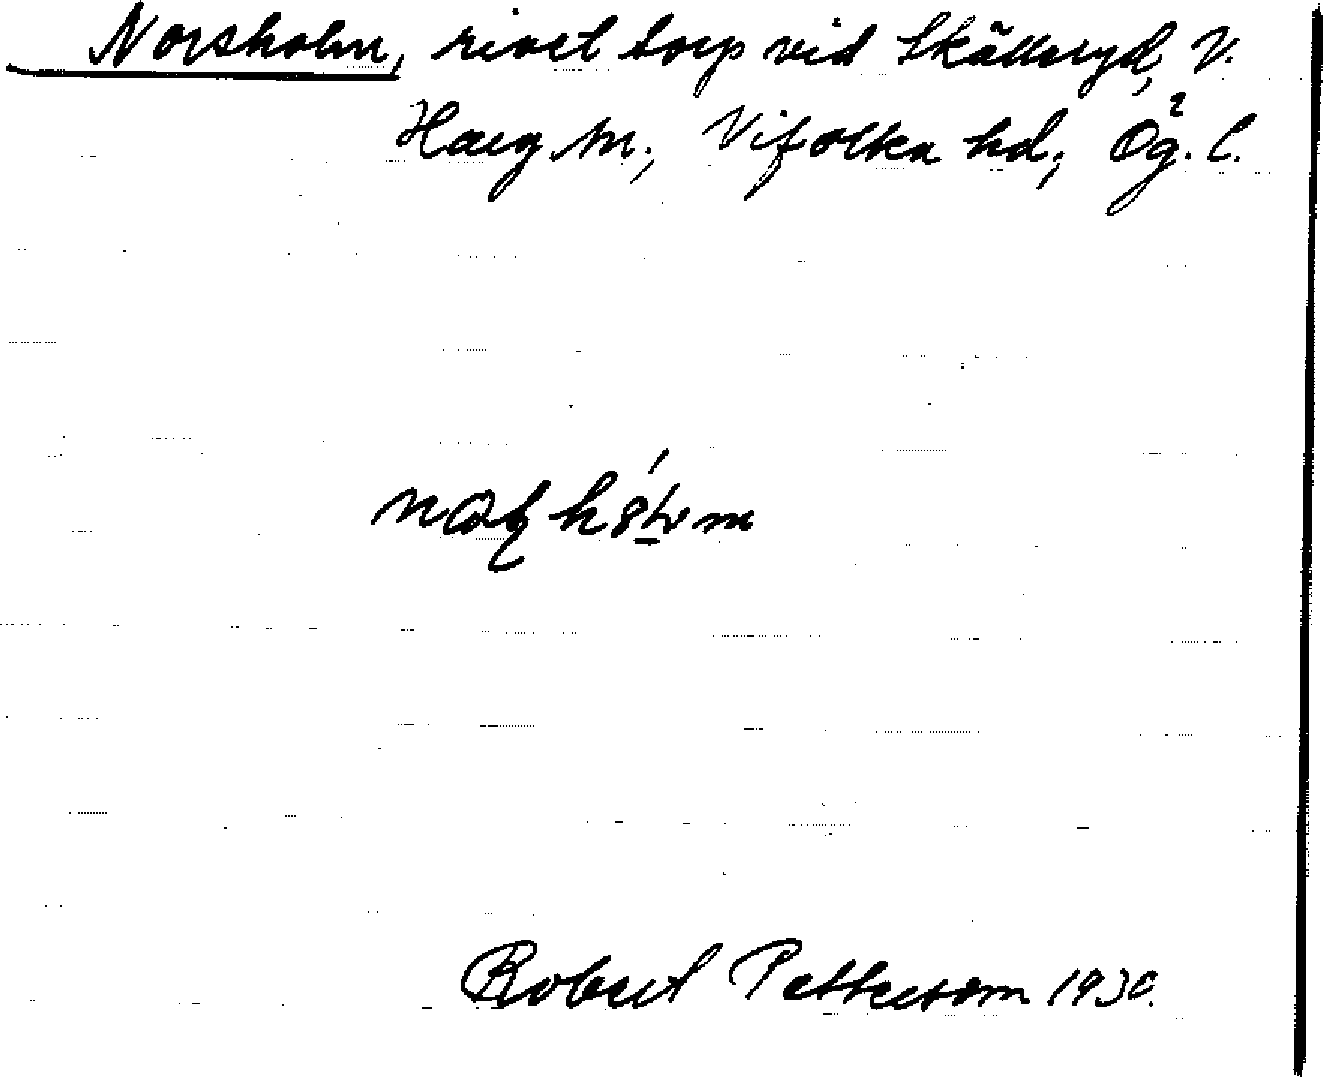 Norsholm, rivet torp vid Skällsryd, V.
Harg sn., Vifolka hd., Ög. l.
Robert Pettersson 1930.